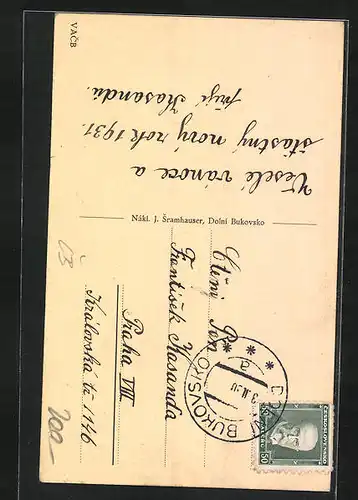 VAČB
Veselé vánoce a
šťastný nový rok 1931.
přejí Kasandů.
Nákl. J. Šramhauser, Dolní Bukovsko
Ctěný Pan
František Kasanda
Praha VIII
Královská tř. 1146
DOLNÍ BUKOVSKO
a
ČESKOSLOVENSKO
50
ČB
200-